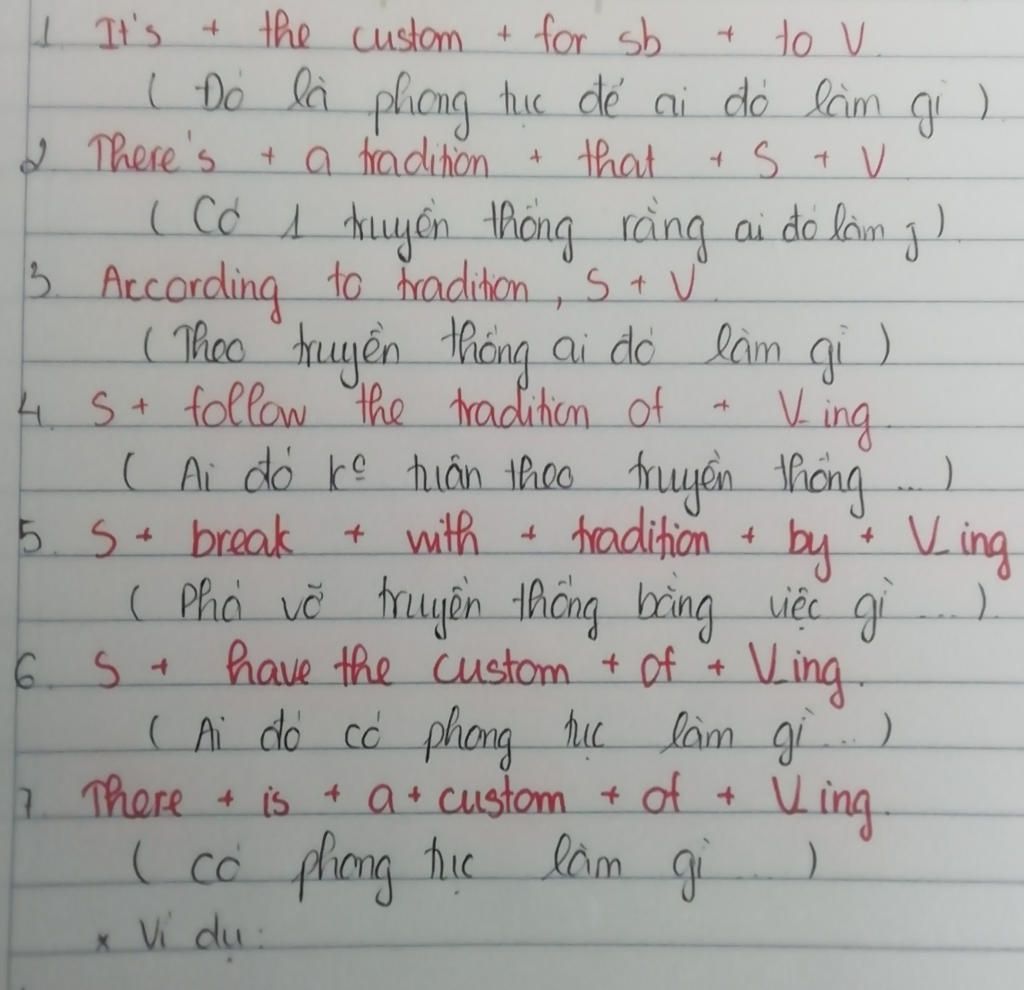 1. It's + the custom + for sb + to V.
( Đó là phong tục để ai đó làm gì )
2 There's + a tradition + that + S + V
( Có 1 truyền thống rằng ai đó làm j ).
3. According to tradition, S + V.
( Theo truyền thống ai đó làm gì )
4. S + follow the tradition of + V-ing.
( Ai đó tuân theo truyền thống ... )
5. S + break + with + tradition + by + V_ing
( Phá vỡ truyền thống bằng việc gì ... ).
6. S + have the custom + of + V_ing.
( Ai đó có phong tục làm gì ... )
7. There + is + a + custom + of + V_ing.
( có phong tục làm gì ... )
x Ví dụ: